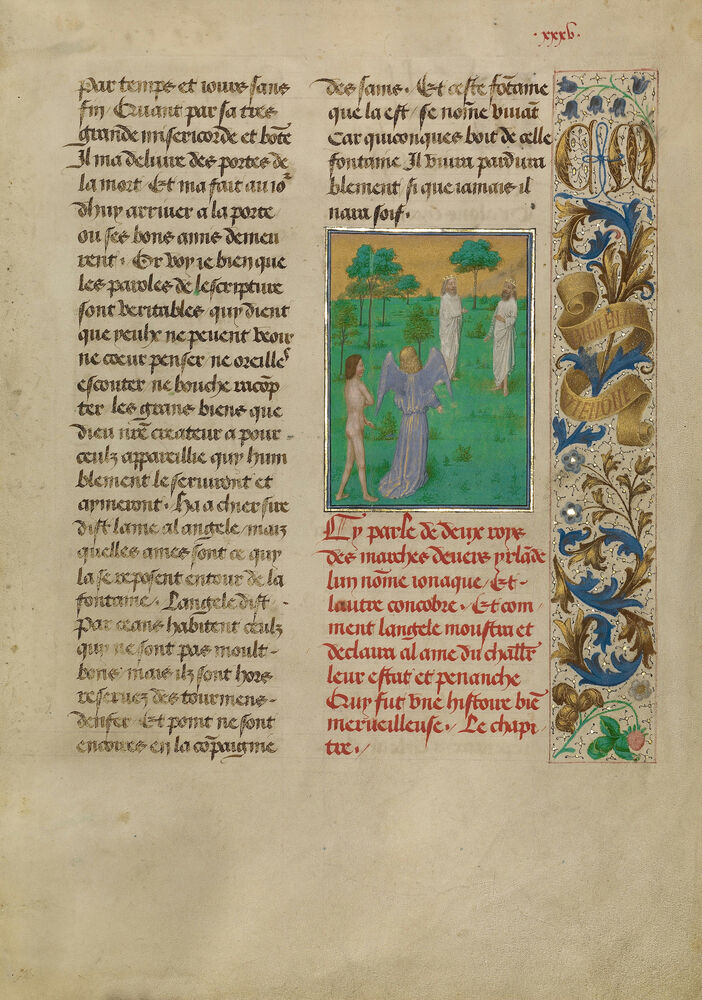 ·xxxv·
par temps et iours sans
fin / Etuant par sa tres
grande misericorde et bōte
Il ma deliure des portes de
la mort Et ma fait au io͛
dhuy arriuer a la porte
ou ses bons amis demeu
rent · Or voy ie bien que
les paroles de lescripture
sont veritables quy dient
que yeulx ne peuent veoir
ne coeur penser / ne oreilles
escouter ne bouche racōp
ter les grans biens que
dieu nr̄e createur a pour
ceulz appareillie quy hum
blement le seruiront et
aymeront · Ha a chier sire
dist lame al angele / maiz
quelles ames sont ce quy
la se reposent entour de la
fontaine · Langele dist ·
Par ceans habitent ceulz
quy ne sont pas moult
bons / mais ilz sont hors
reseruez des tourmens
denfer · Et point ne sont
encores en la cōpaignie
des sains · Et ceste fōtaine
que la est / se nōme viuāt
Car quiconques boit de celle
fontaine Il viura pardura
blement si que iamais il
naura soif ·
Cy parle de deux roys
des marches deuers yrlāde
lun nōme ionaque / Et
lautre concobre · Et com
ment langele moustra et
declaira al ame du chl̄lr
leur estat et penanche
Quy fut vne histoire biē
merueilleuse · Le chapi
tre ·/